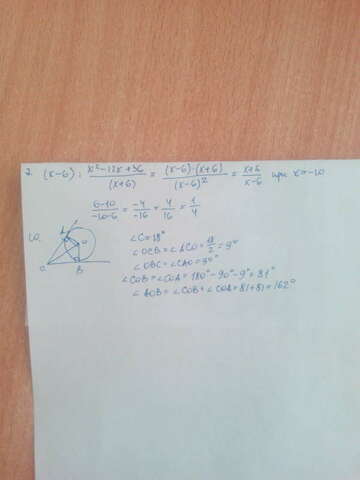 2. (x-6) : \frac{x²-12x+36}{(x+6)} = \frac{(x-6)·(x+6)}{(x-6)²} = \frac{x+6}{x-6} при x=-10
\frac{6-10}{-10-6} = \frac{-4}{-16} = \frac{4}{16} = \frac{1}{4}
10.
A
O
C
B
∠C=18°
∠OCB=∠ACO=\frac{18}{2}=9°
∠OBC=∠CAO=90°
∠COB=∠COA=180°-90°-9°=81°
∠AOB=∠COB+∠COA=81+81=162°